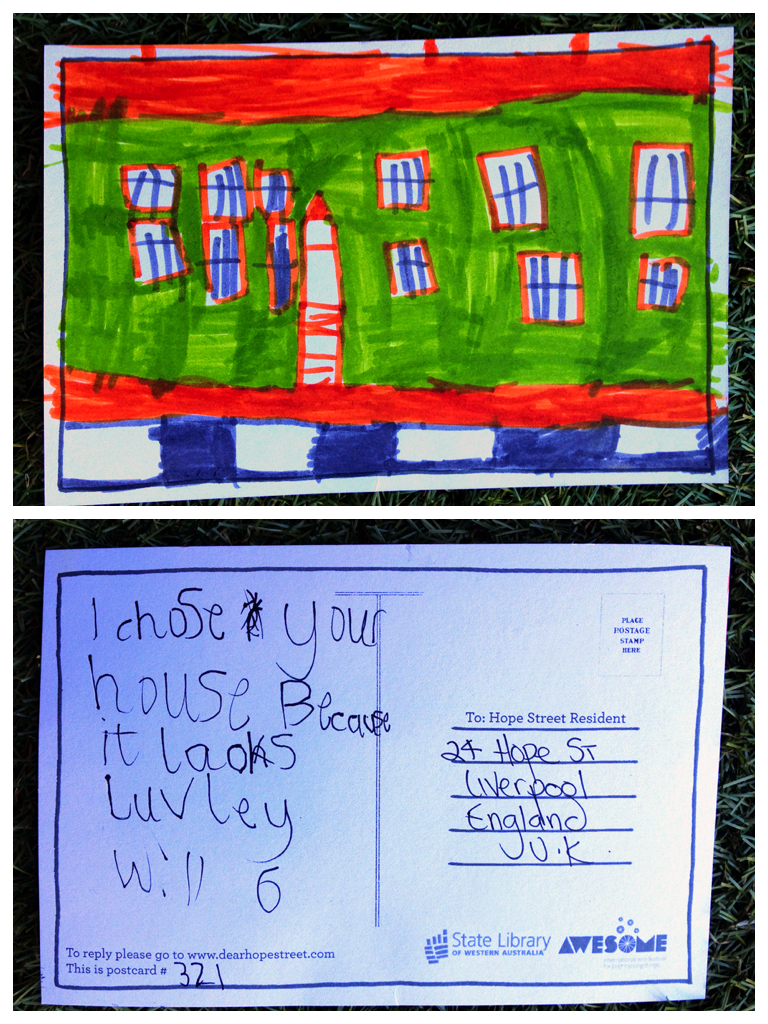 I chose your
house Because
it laoks
Luvley
Will 6
PLACE
POSTAGE
STAMP
HERE
To: Hope Street Resident
24 Hope ST
Liverpool
England
U.K.
To reply please go to www.dearhopestreet.com
This is postcard # 321
State Library
OF WESTERN AUSTRALIA
AWESOME